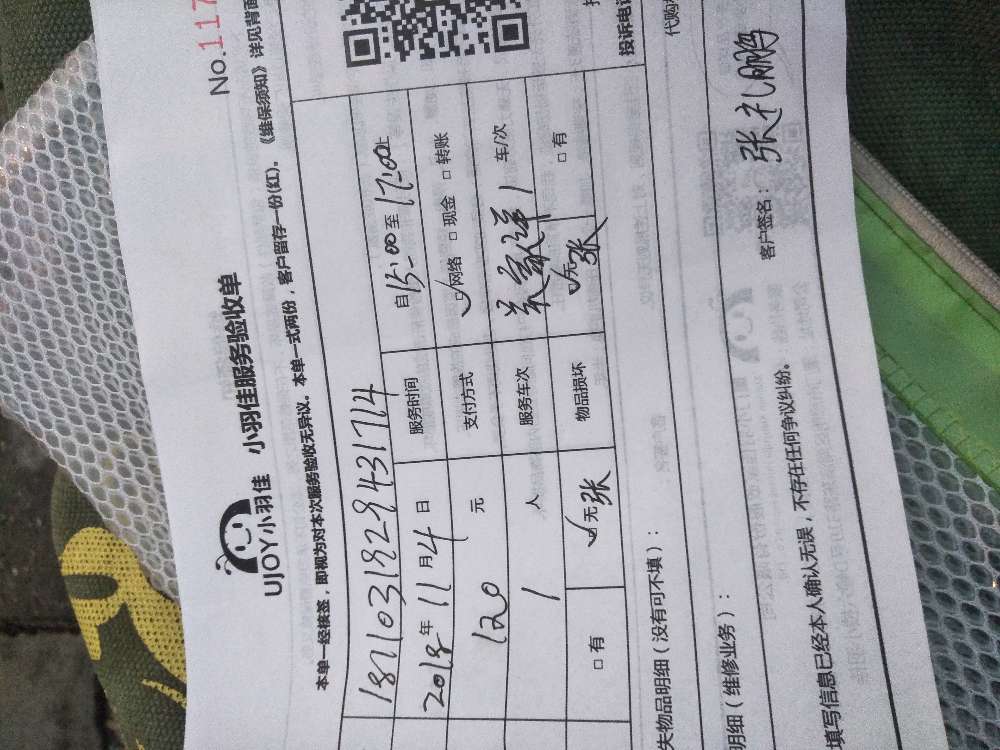 No.117
UJOY小羽佳 小羽佳服务验收单
本单一经接签，即视为对本次服务验收无异议。本单一式两份，客户留存一份(红)。《维保须知》详见背面
1811031929431714
2018年11月4日 服务时间 自15:00至17:00止
120元 支付方式 ☑网络 □现金 □转账
1人 服务车次 1 车/次
□有 ☑无 张 物品损坏 ☑无 张 □有
投诉电话
失物品明细（没有可不填）：
代购
明细（维修业务）：
填写信息已经本人确认无误，不存在任何争议纠纷。 客户签名：张礼鹏